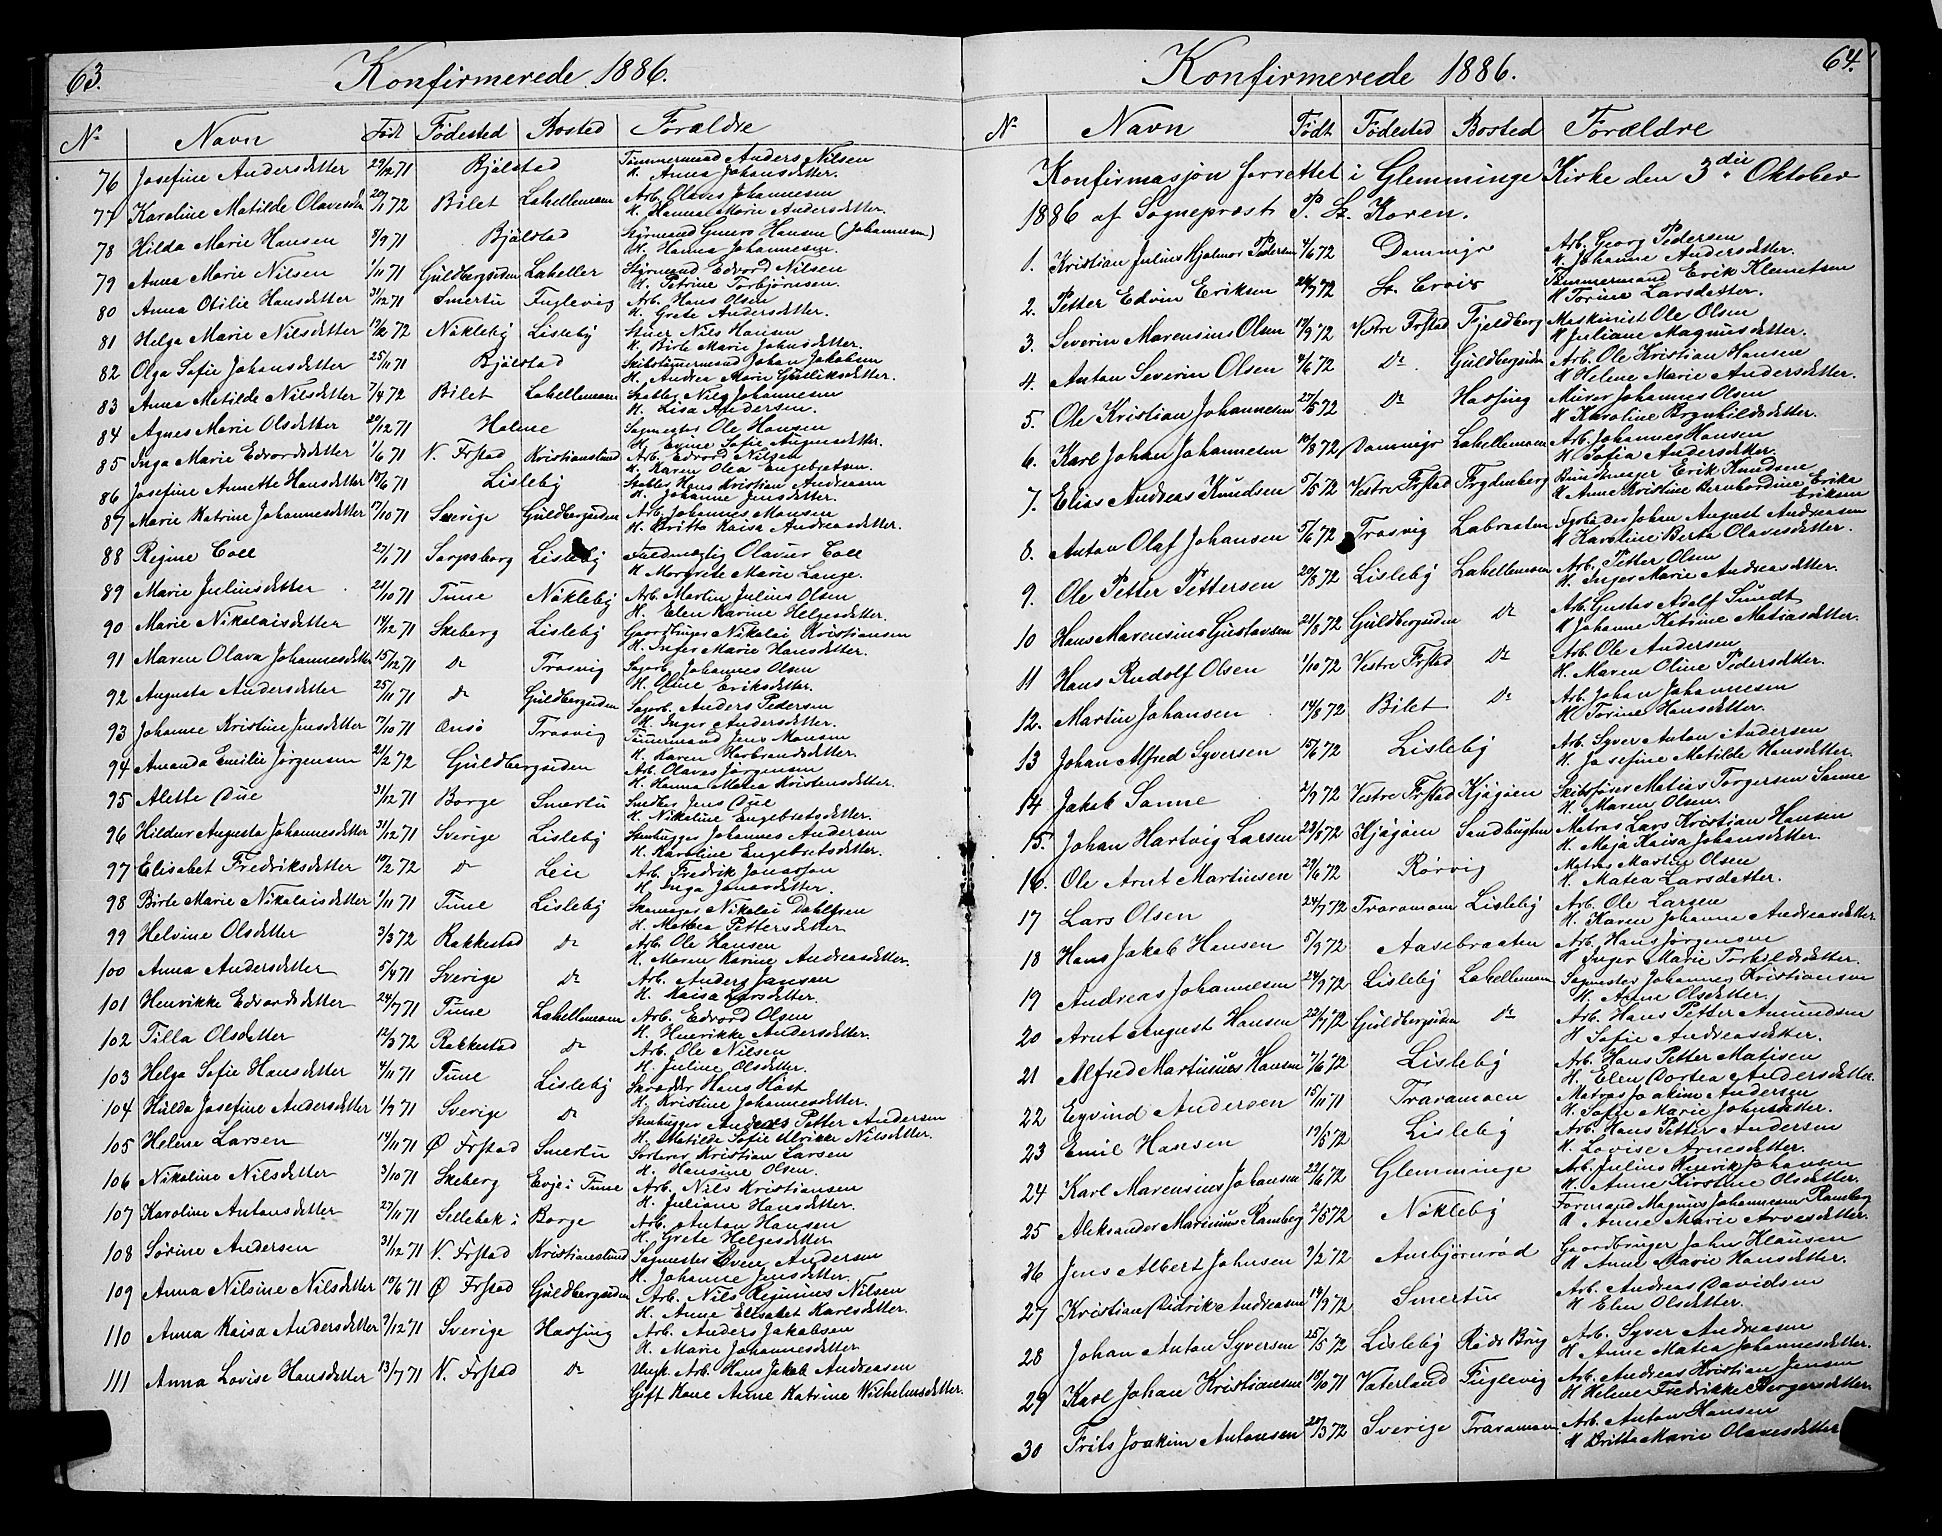 63.
Konfirmerede 1886.
No Navn Født Fødested Bosted Forældre
76 Josefine Andersdatter 29/12 71 Bjålstad Tømmermand Anders Nilsen
H. Anna Johansdatter.
77 Karoline Matilde Olavesdtr 20/1 72 Bilet Labellemoen Arb. Olaves Johannesen
H. Hanna Marie Andersdatter.
78 Hilda Marie Hansen 8/9 71 Bjålstad Styrmand Hansen (Johannesen)
H. Hanna Johannesen.
79 Anna Marie Nilsen 1/11 71 Guldbergsiden Labeller Styrmand Edvard Nilsen
H. Petrine Torbjørnsen.
80 Anna Otilie Hansdatter 31/12 71 Smertu Fuglevig Arb. Hans Olsen
H. Grete Andersdatter.
81 Helga Marie Nilsdatter 12/2 72 Nøkleby Lisleby Stuer Nils Hansen
H. Birte Marie Johnsdatter.
82 Olga Sofie Johansdatter 25/11 71 Bjålstad Skibstømermand Johan Jakobsen
H. Andrea Marie Gulliksdatter.
83 Anna Matilde Nilsdatter 7/4 72 Bilet Labellemoen Stabler Nils Johannesen
H. Lisa Andersen.
84 Agnes Marie Olsdatter 20/12 71 Holme Sagmester Ole Hansen
H. Evine Sofie Augunsdatter.
85 Inga Marie Edvardsdatter 1/6 71 N. Frstad Kristianslund Arb. Edvard Nilsen
H. Karen Olea Engebretsen.
86 Josefine Annette Hansdatter 15/6 71 Lisleby Stabler Hans Kristian Andreasen
H. Johanne Jensdatter.
87 Marie Katrine Johannesdatter 17/10 71 Sverige Guldbergsiden Arb. Johannes Monsen
H. Britta Kaisa Andreasdatter.
88 Regine Coll 27/1 71 Sarpsborg Lisleby Fuldmægtig Olavur Coll
H. Margrete Marie Lange.
89 Marie Juliusdatter 21/10 71 Tune Nøkleby Arb. Martin Julius Olsen
H. Elen Karine Helgesdatter.
90 Marie Nikolaisdatter 14/12 71 Skeberg Lisleby Gaardbruger Nikolai Kristiansen
H. Inger Marie Hansdatter.
91 Maren Olava Johannesdatter 15/12 71 Do Trosvig Sagarb. Johannes Olsen
H. Oline Eriksdatter.
92 Augusta Andersdatter 25/11 71 Do Guldbergsiden Sagarb. Anders Pedersen
H. Inger Andersdatter.
93 Johanne Kristine Jensdatter 7/10 71 Onsø Trosvig Tømermand Jens Monsen
H. Karen Harbrandsdatter.
94 Amanda Emilie Jørgensen 21/2 72 Guldbergsiden Arb. Olaves Jørgensen
H. Hanna Matea Kristensdatter.
95 Alette Due 31/12 71 Borge Smertu Snedker Jens Due
H. Nikoline Engebretsdatter.
96 Hildur Augusta Johannesdatter 31/12 71 Sverige Lisleby Stenhugger Johannes Andersen
H. Karoline Engebretsdatter.
97 Elisabet Fredriksdatter 19/2 72 Do Leie Arb. Fredrik Jonasson
H. Inga Jonasdatter.
98 Birte Marie Nikolaisdatter 1/11 71 Tune Lisleby Skomager Nikolai Dahlgren
H. Mathea Pettersdatter
99 Helvine Olsdatter 3/3 72 Rakkestad Do Arb. Ole Hansen
H. Maren Karine Andreasdatter.
100 Anna Andersdatter 5/4 71 Sverige Do Arb. Anders Jansen
H. Kaisa Larsdatter.
101 Henrikke Edvardsdatter 24/7 71 Tune Labellemoen Arb. Edvard Olsen
H. Henrikke Andersdatter.
102 Tilla Olsdatter 12/3 72 Rakkestad Do Arb. Ole Nilsen
H. Juline Olsdatter.
103 Helga Sofie Hansdatter 4/11 71 Tune Lisleby Skrædder Hans Høst
H. Kristine Johannesdatter.
104 Hulda Josefine Andersdatter 1/9 71 Sverige Do Stenhugger Andreas Petter Andersen
H. Matilde Sofie Ulrikke Nilsdatter.
105 Helene Larsen 14/11 71 Ø Frstad Smertu Sorterer Kristian Larsen
H. Hansine Olsen.
106 Nikoline Nilsdatter 3/10 71 Skeberg Evje i Tune Arb. Nils Kristiansen
H. Juliane Hansdatter.
107 Karoline Antonsdatter 27/11 71 Sellebak i Borge Arb. Anton Hansen
H. Grete Helgesdatter.
108 Sørine Andersen 31/12 71 N. Frstad Kristianslund Sagmester Even Andersen
H. Johanne Jensdatter.
109 Anna Nilsine Nilsdatter 19/6 71 Ø Frstad Guldbergsiden Arb. Nils Reginius Nilsen
H. Anne Elisabet Karlsdatter.
110 Anna Kaisa Andersdatter 9/12 71 Sverige Hassing Arb. Anders Jakobsen
H. Marie Johannesdatter
111 Anna Lovise Hansdatter 13/7 71 N. Frstad Do Ungk. Arb. Hans Jakob Andreasen
Gift Kone Anne Katrine Wilhelmsdatter.
64.
Konfirmerede 1886.
No Navn Født Fødested Bosted Forældre
Konfirmasjon forrettet i Glemminge Kirke den 3die Oktober
1886 af Sogneprest P. L. Koren.
1. Kristian Julius Hjalmar Pedersen 4/6 72 Dammyr Arb. Georg Pedersen
H. Johanne Andersdatter.
2. Petter Edvin Eriksen 24/7 72 St. Croix Tømmermand Erik Klemetsen
H Torine Larsdatter.
3. Severin Marensius Olsen 12/9 72 Vestre Frstad Fjeldberg Maskinist Ole Olsen
H Juliane Magnusdatter.
4. Anton Severin Olsen 4/6 72 Do Guldbergsiden Arb. Ole Kristian Hansen
H Helene Marie Andersdatter.
5. Ole Kristian Johannesen 27/5 72 Do Hassing Murer Johannes Olsen
H Karoline Brynhildsdatter.
6. Karl Johan Johannesen 10/8 72 Dammyr Labellemoen Arb. Johannes Hansen
H Sofia Andersdatter.
7. Elias Andreas Knudsen 5/5 72 Vestre Frstad Frydenberg Buntmager Erik Knudsen
H Anne Kristine Bernhardine Erika
Eriksen
8. Anton Olaf Johansen 5/6 72 Trosvig Labraaten Fyrbøder Johan August Andreasen
H Karoline Berta Olavesdatter.
9. Ole Petter Pettersen 20/8 72 Lisleby Labellemoen Arb. Petter Olsen
H. Inger Marie Andreasdatter.
10 Hans Marensius Gustavsen 21/8 72 Guldbergsiden Do Arb. Gustav Adolf Sundt
H Johanne Katrine Matiasdatter.
11 Hans Rudolf Olsen 1/10 72 Vestre Frstad Do Arb. Ole Andersen
H. Maren Oline Pedersdatter.
12. Martin Johansen 14/8 72 Bilet Do Arb. Johan Johannesen
H Torine Hansdatter.
13 Johan Alfred Syversen 15/6 72 Lisleby Arb. Syver Anton Andersen
H. Josefine Matilde Hansdatter.
14. Jakob Sanne 2/9 72 Vestre Frstad Kjøgøen Skibsfører Matias Torgersen Sanne
H. Maren Olsen.
15. Johan Hartvig Larsen 23/8 72 Kjøgøen Sandbugten Matros Lars Kristian Hansen
H. Maja Kaisa Johansdatter.
16. Ole Arnt Martinsen 29/6 72 Rørvig Matros Martin Olsen
H. Matea Larsdatter.
17 Lars Olsen 24/7 72 Traramoen Lisleby Arb. Ole Larsen
H. Karen Johanne Andreasdatter
18 Hans Jakob Hansen 5/9 72 Aasebraaten Arb. Hans Jørgensen
H Inger Marie Torkildsdatter.
19 Andreas Johannesen 24/9 72 Lisleby Labellemoen Sagmester Johannes Kristiansen
H. Anne Olsdatter.
20 Arnt August Hansen 22/7 72 Guldbergsiden Do Arb. Hans Petter Amundsen
H Sofie Andreasdatter.
21 Alfred Martinius Hansen 7/6 72 Lisleby Arb. Hans Petter Matisen
H. Elen Dortea Andersdatter.
22 Eyvind Andersen 15/11 71 Traramoen Matros Joakim Andersen
H. Sofie Marie Johnsdatter.
23 Emil Hansen 19/5 72 Lisleby Arb. Hans Petter Andersen
H. Lovise Arnesdatter.
24 Karl Marensius Johansen 22/6 72 Glemminge Arb. Julius Henrik Johansen
H. Anne Kirstine Olsdatter.
25 Aleksander Marinius Ramberg 2/5 72 Nøkleby Formand Magnus Johannesen Ramberg
H Anne Marie Arvesdatter.
26 Jens Albert Johnsen 9/2 72 Ambjørnrød Gaardbruger John Klausen
H Anne Marie Hansdatter.
27 Kristian Didrik Andreasen 14/9 72 Smertu Arb. Andreas Davidsen
H Elen Olsdatter.
28 Johan Anton Syversen 25/5 72 Lisleby Røds Brug Arb. Syver Andreasen
H Anne Matea Johannesdatter.
29 Karl Johan Kristiansen 19/10 71 Vaterland Fuglevig Arb. Andreas Kristian Jensen
H Helene Fredrikke Børgersdatter.
30 Frits Joakim Antonsen 20/3 72 Sverige Traramoen Arb. Anton Hansen
H Britta Marie Olavesdatter